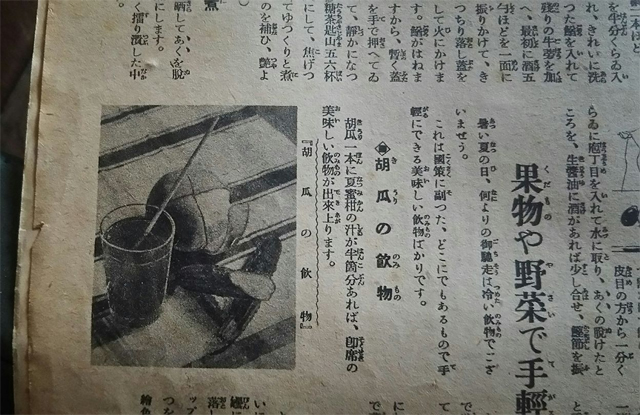 本ほど
を半分くゐ入
れ、きれいに洗
つた鰌を入れて
殘りの生姜を加
へ、最初に酒五
勺ほどを一面に
振りかけて、き
つちり落し蓋を
して火にかけま
す。鰌がはねま
すから、暫く蓋
を手で押へてゐ
て、靜かになつ
糖茶匙山五六杯
にして、焦げつ
てゆつくりと煮
のを補ひ、艶よ
煮
晒してあくを脫
にします。
く擂り潰した中
皮目の方から一分く
らゐに庖丁目を入れて水に取り、あくの脫けたと
ころを、生醬油に酒があれば少し合せ、鰹節を振
果物や野菜で手輕
暑い夏の日、何よりの御馳走は冷い飮物でござ
いませう。
これは國策に副つた、どこにでもあるもので手
輕にできる美味しい飮物ばかりです。
胡瓜の飮物
胡瓜一本に夏蜜柑の汁が半箇分あれば、卽席の
美味しい飮物が出來上ります。
『胡瓜の飮物』